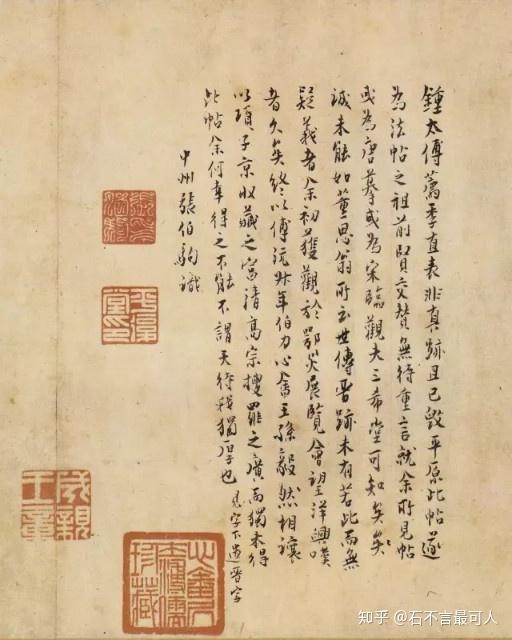 鍾太傅薦季直表非真跡且已毀平原此帖遂
為法帖之祖前賢交贊無待重言就余所見帖
或為唐摹或為宋臨觀夫三希堂可知矣矣
誠未能如董思翁所云世傳晉跡未有若此而無
疑義者余初獲觀於鄂災展覽會望洋興嘆
者久矣終以傅沅叔年伯力心畬王孫毅然相讓
以項子京收藏之富清高宗搜羅之廣而獨未得
此帖余何幸得之不能不謂天待我獨厚也 見字下遺晉字
中州張伯駒識
平復堂印
知乎 @石不言最可人